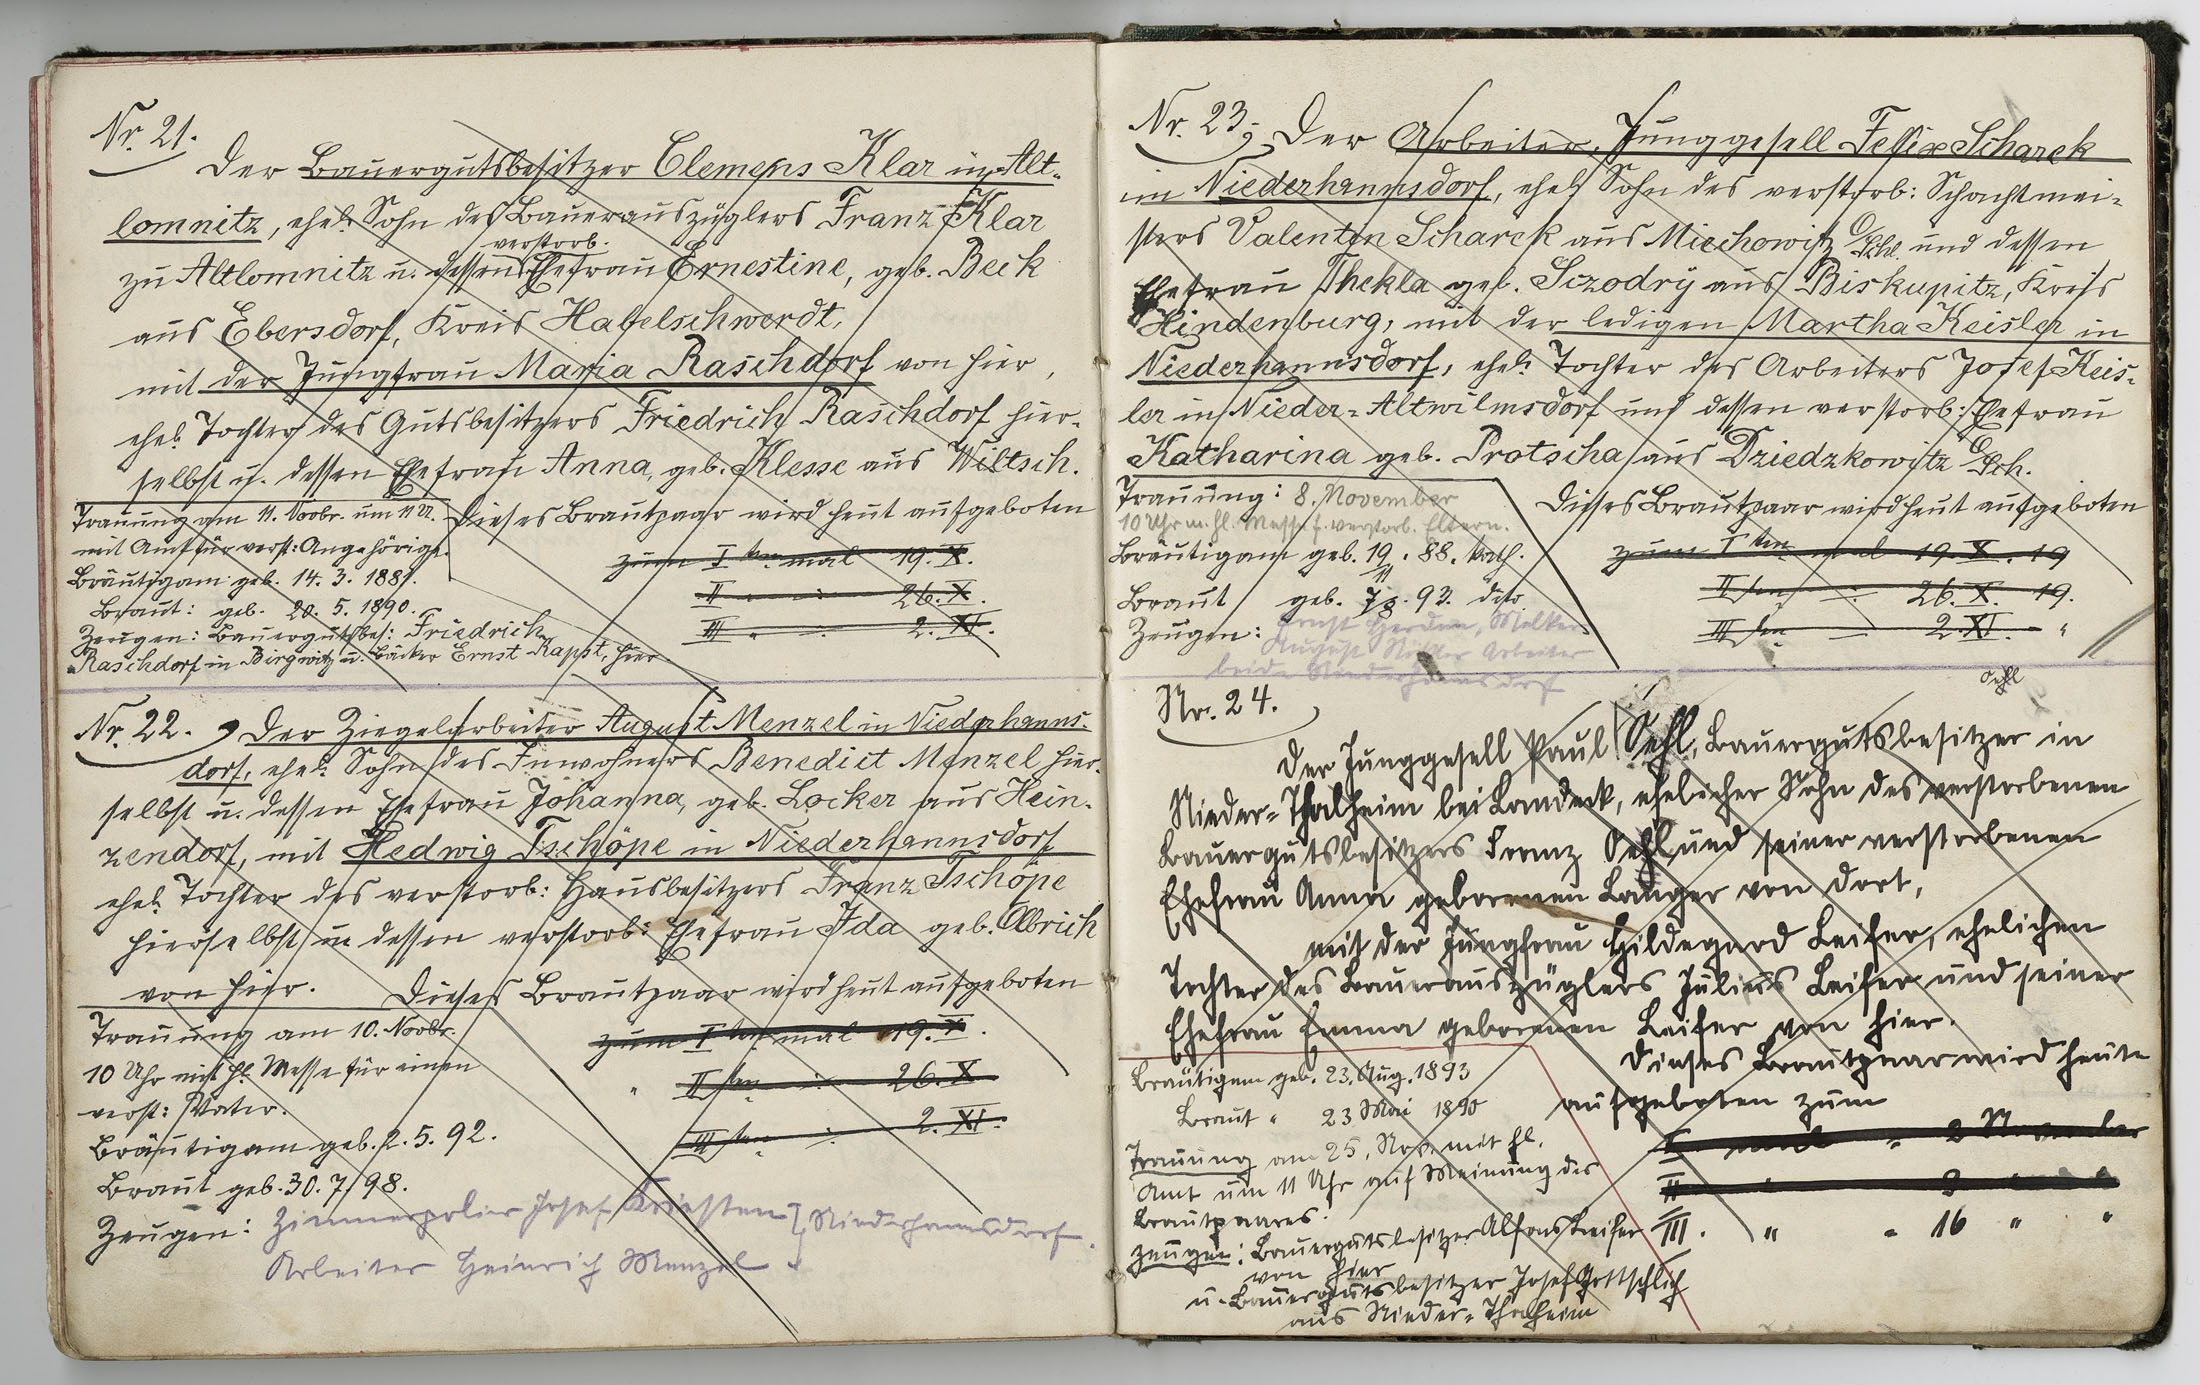 Nr. 21.
Der Bauergutsbesitzer Clemens Klar in Alt-
lomnitz, ehel. Sohn des Bauerauszüglers Franz Klar
verstorb.
zu Altlomnitz u. dessen Ehefrau Ernestine, geb. Beck
aus Ebersdorf, Kreis Habelschwerdt,
mit der Jungfrau Maria Raschdorf von hier,
ehel. Tochter des Gutsbesitzers Friedrich Raschdorf hier-
selbst u. dessen Ehefrau Anna, geb. Klesse aus Wiltsch.
Dieses Brautpaar wird heut aufgeboten
zum I ten mal 19. X.
II " " 26. X.
III " " 2. XI.
Trauung am 11. Novbr. um 11 U.
mit Amt für verst: Angehörige.
Bräutigam geb. 14. 3. 1881.
Braut: geb. 20. 5. 1890.
Zeugen: Bauergutsbes: Friedrich
Raschdorf in Birgwitz u. Bäcker Ernst Rapst, hier
Nr. 22. Der Ziegelarbeiter August Menzel in Niederhanns-
dorf, ehel. Sohn des Inwohners Benedict Menzel hier-
selbst u. dessen Ehefrau Johanna, geb. Locker aus Hein-
zendorf, mit Hedwig Tschöpe in Niederhannsdorf
ehel. Tochter des verstorb: Hausbesitzers Franz Tschöpe
hierselbst u. dessen verstorb: Ehefrau Ida geb. Olbrich
von hier. Dieses Brautpaar wird heut aufgeboten
zum I ten mal 19. X.
" II ten " 26. X
III ten " 2. XI.
Trauung am 10. Novbr.
10 Uhr mit hl. Messe für einen
verst: Vater.
Bräutigam geb. 2. 5. 92.
Braut geb. 30. 7. 98.
Zeugen: Zimmerpolier Josef Kriesten } Niederhannsdorf.
Arbeiter Heinrich Menzel
Nr. 23. Der Arbeiter, Junggesell Felix Scharek
in Niederhannsdorf, ehel. Sohn des verstorb: Schachtmei-
sters Valentin Scharek aus Miechowitz O/Schl. und dessen
Ehefrau Thekla geb. Sczodry aus Biskupitz, Kreis
Hindenburg, mit der ledigen Martha Keisler in
Niederhannsdorf, ehel. Tochter des Arbeiters Josef Keis-
ler in Nieder-Altwilmsdorf und dessen verstorb: Ehefrau
Katharina geb. Protscha aus Dziedzkowitz O/Sch.
Dieses Brautpaar wird heut aufgeboten
zum I ten mal 19. X. 19
II ten " 26. X. 19.
III ten — 2. XI. "
Trauung: 8. November
10 Uhr m. hl. Messe f. verstorb. Eltern.
Bräutigam geb. 19. . 88. kath.
Braut geb. 7/8. 93. dito
Zeugen: Ernst Herden, Melker
August Arbeiter
beide Niederhannsdorf
Nr. 24.
Oehl
Der Junggesell Paul Oehl, Bauergutsbesitzer in
Nieder-Thalheim bei Landeck, ehelicher Sohn des verstorbenen
Bauergutsbesitzers Franz Oehl und seiner verstorbenen
Ehefrau Anna geborenen Langer von dort,
mit der Jungfrau Hildegard Leifer, ehelichen
Tochter des Bauerauszüglers Julius Leifer und seiner
Ehefrau Emma geborenen Leifer von hier.
Dieses Brautpaar wird heute
aufgeboten zum
I mal " 2 November
II " 9 " "
III. " " 16 " "
Bräutigam geb. 23. Aug. 1893
Braut " 23 Mai 1890
Trauung am 25. Nov. mit hl.
Amt um 11 Uhr auf Meinung des
Brautpaares.
Zeugen: Bauergutsbesitzer Alfons Leifer
von hier
u. Bauergutsbesitzer Josef Gottschlich
aus Nieder-Thalheim